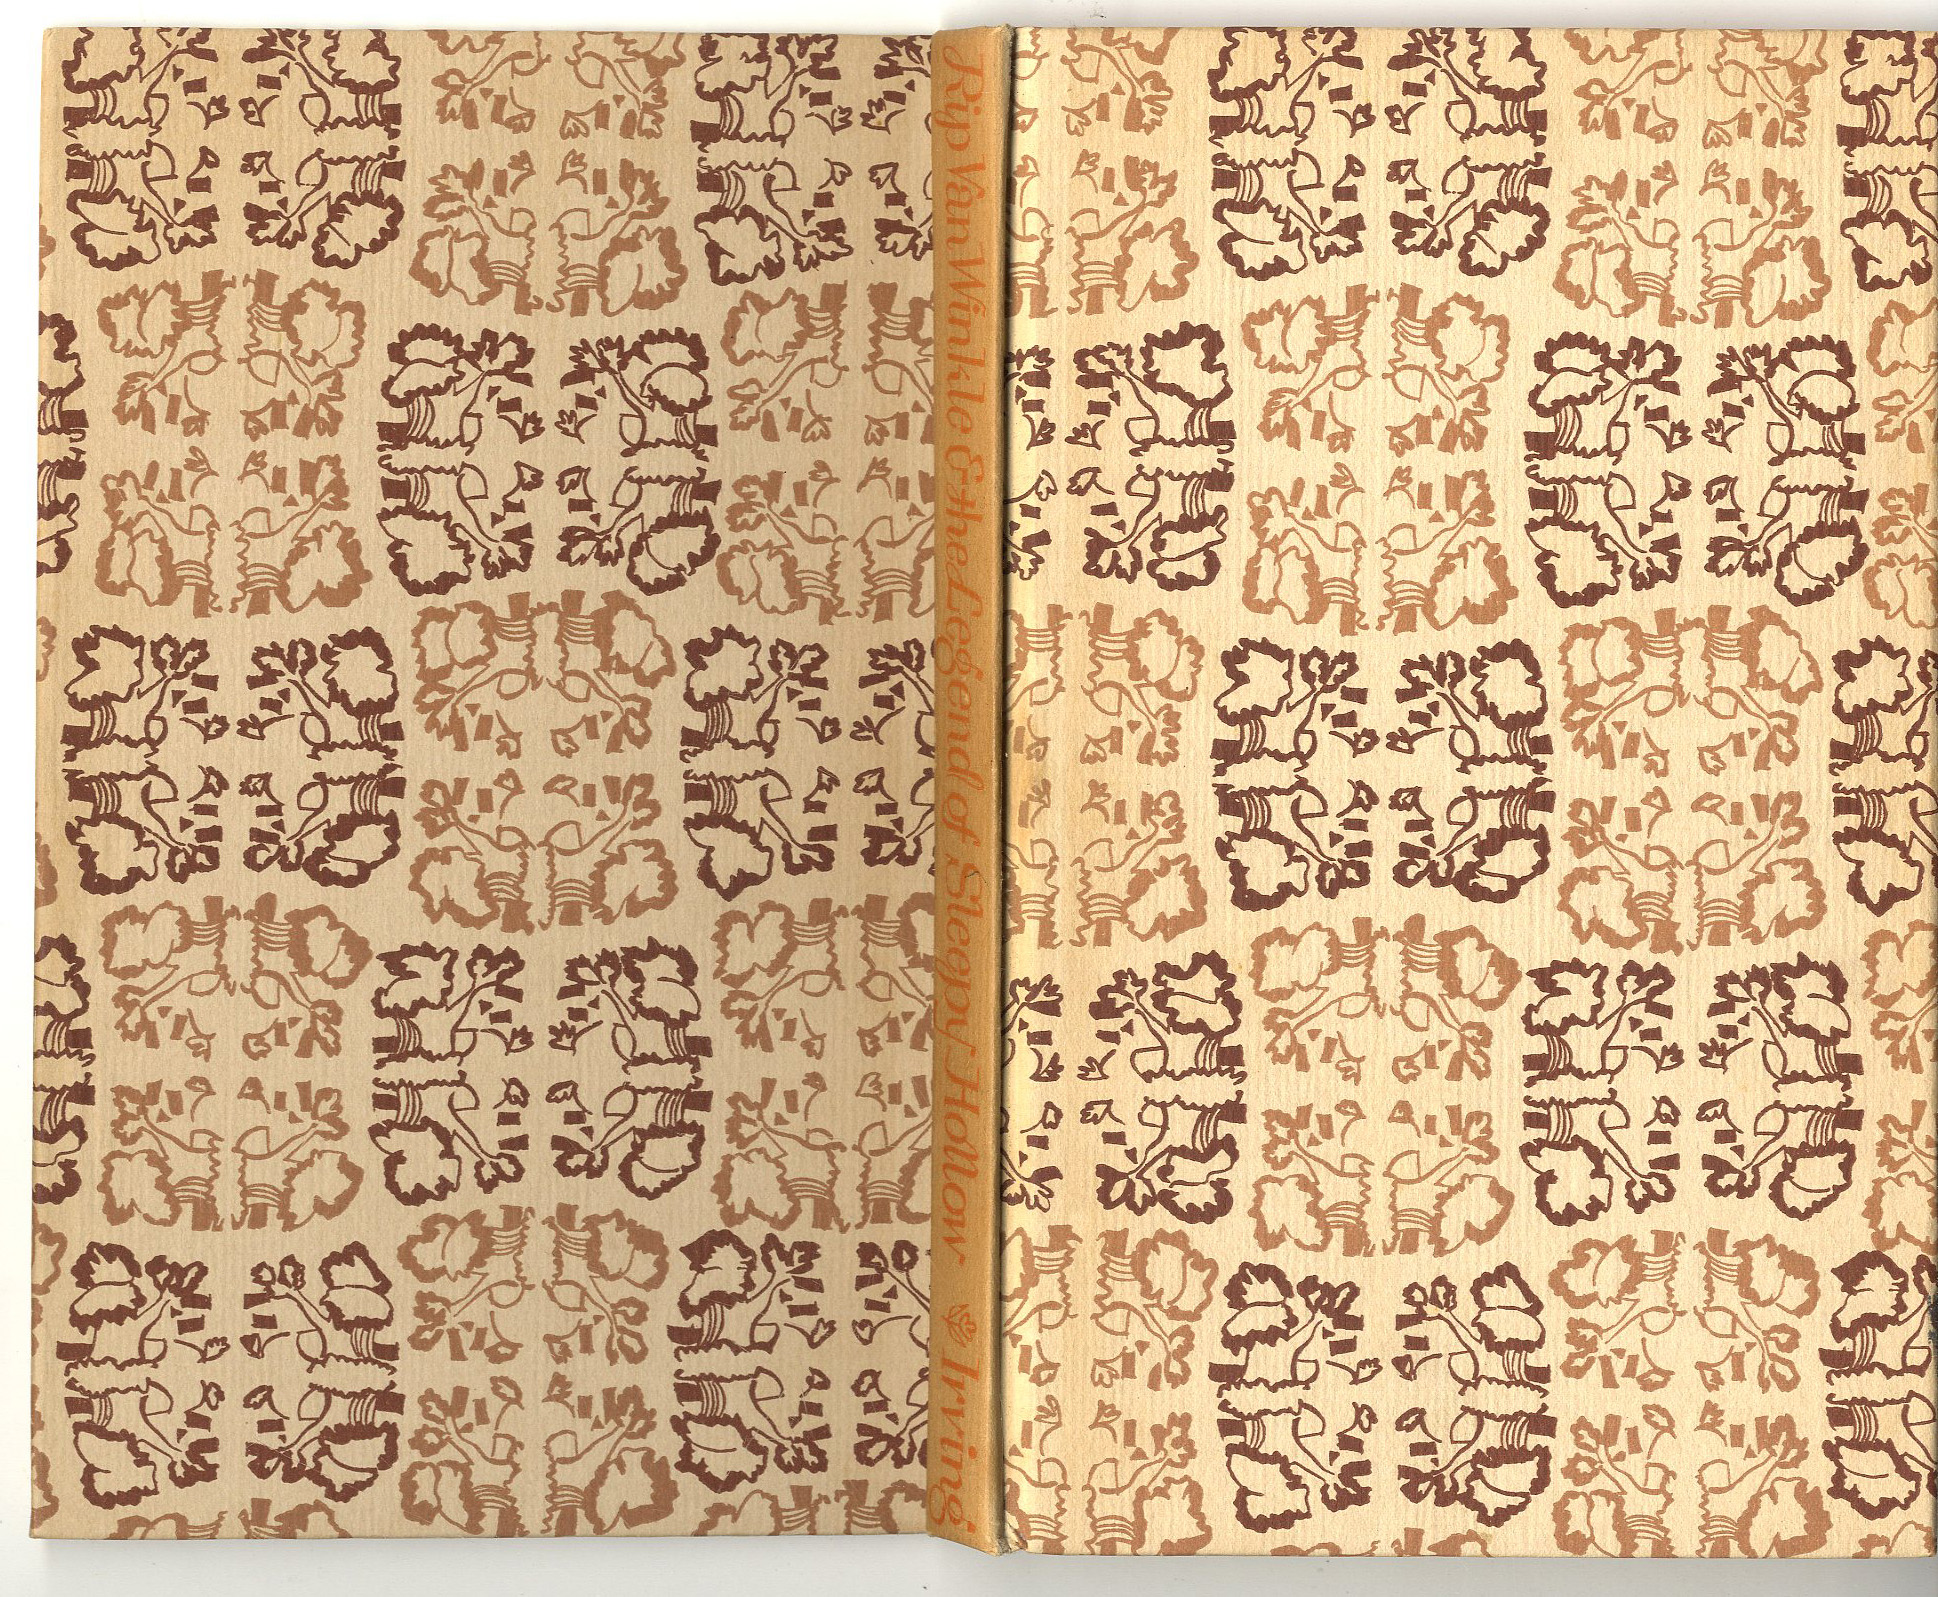 Rip Van Winkle & the Legend of Sleepy Hollow Irving